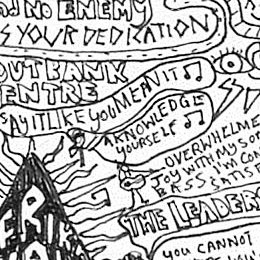 NO ENEMY
S YOUR DEDICATION
OUTBANK
ENTRE
SAY IT LIKE YOU MEAN IT
AKNOWLEDGE
YOURSELF
OVERWHELME
JOY WITH MY SO
BASS I'M CON
SATIS
THE LEADERS
YOU CANNOT